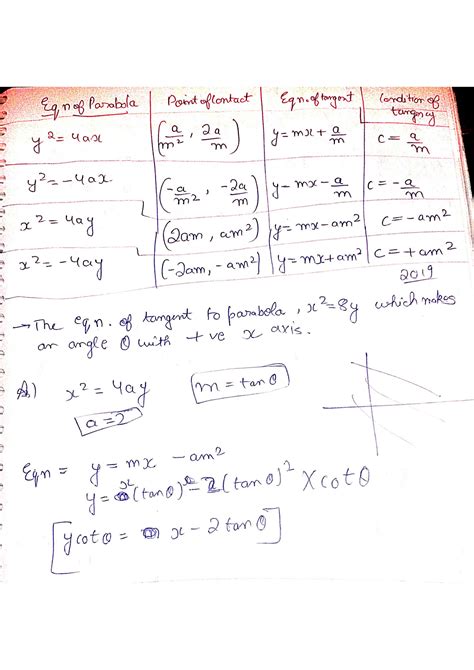 Eqn of Parabola Point of Contact Eqn. of tangent Condition of tangency
y² = 4ax (a/m², 2a/m) y = mx + a/m c = a/m
y² = -4ax (-a/m², -2a/m) y - mx - a/m c = -a/m
x² = 4ay (2am, am²) y = mx - am² c = -am²
x² = -4ay (-2am, -am²) y = mx + am² c = +am²
2019
→ The eqn. of tangent to parabola, x² = 8y which makes
an angle θ with +ve x axis.
A) x² = 4ay m = tanθ
a = 2
Eqn = y = mx - am²
y = x(tanθ) - 2(tanθ)² X cotθ
y cotθ = x - 2tanθ